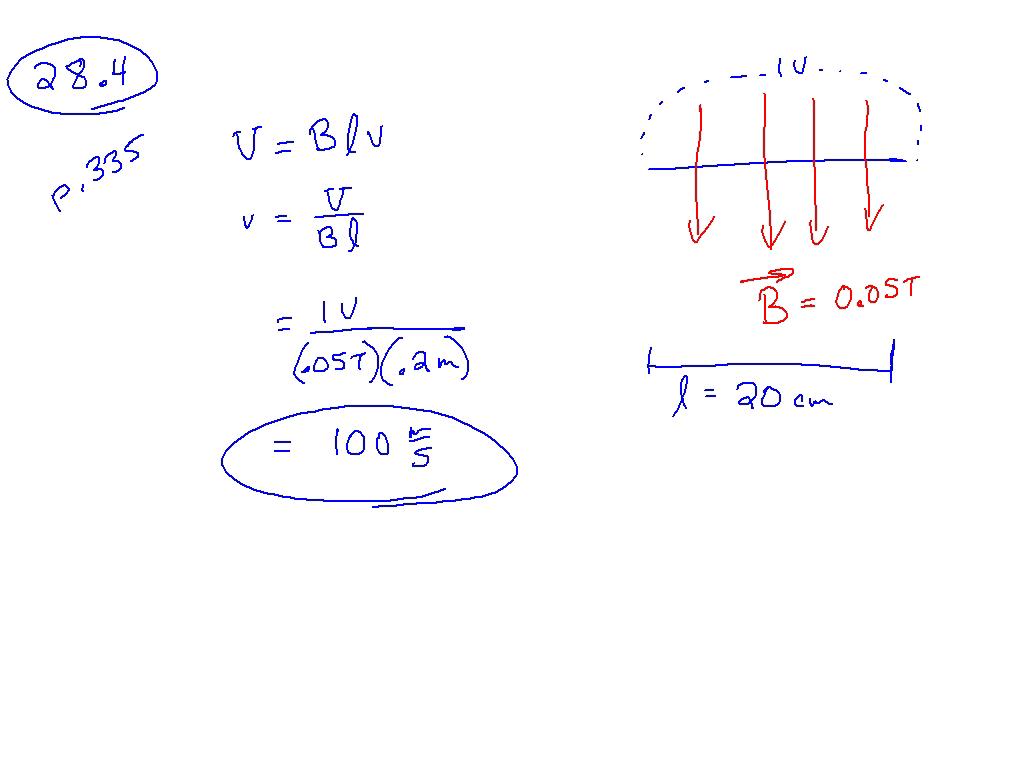 28.4
p.335
V = Blv
v = V / Bl
= 1V / (.05T)(.2m)
= 100 m/s
1V
B = 0.05T
l = 20 cm